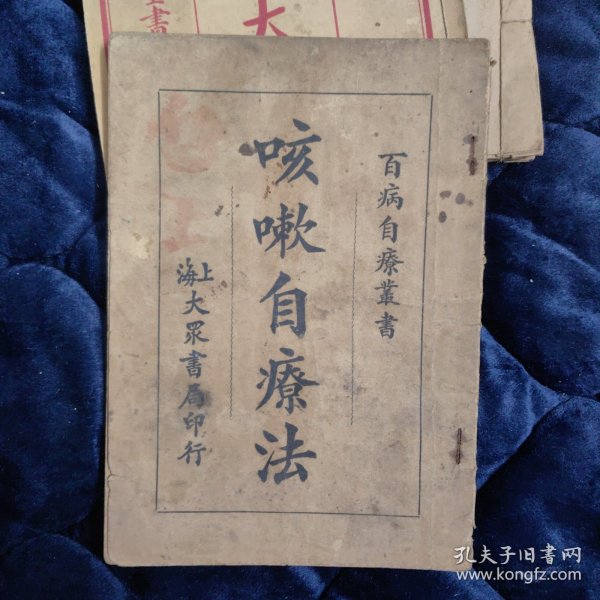 百病自療叢書
咳嗽自療法
上海大眾書局印行
大
書
孔夫子旧书网
www.kongfz.com